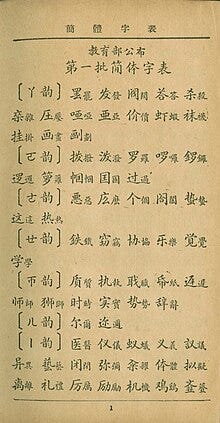 簡體字表
教育部公布
第一批简体字表
〔ㄚ韵〕罢罷 发發 阀閥 答荅 杀殺
杂雜 压壓 哑啞 亚亞 价價 虾蝦 袜襪
挂掛 画畫 劃
〔ㄛ韵〕拨撥 泼潑 罗羅 啰囉 锣鑼
逻邏 萝蘿 国國 过過
〔ㄜ韵〕恶惡 庅麽 个個 阁閣 蛰蟄
这這 热熱
〔ㄝ韵〕鉄鐵 窃竊 协協 乐樂 覚覺
学學
〔ㄭ韵〕质質 执執 职職 帋紙 迟遲
师師 狮獅 时時 实實 势勢 辞辭
〔ㄦ韵〕尔爾 迩邇
〔ㄧ韵〕医醫 仪儀 蚁蟻 义義 议議
异異 艺藝 闭閉 弥彌 籴糴 体體 拟擬
离離 礼禮 厉厲 励勵 机機 鸡鷄
1